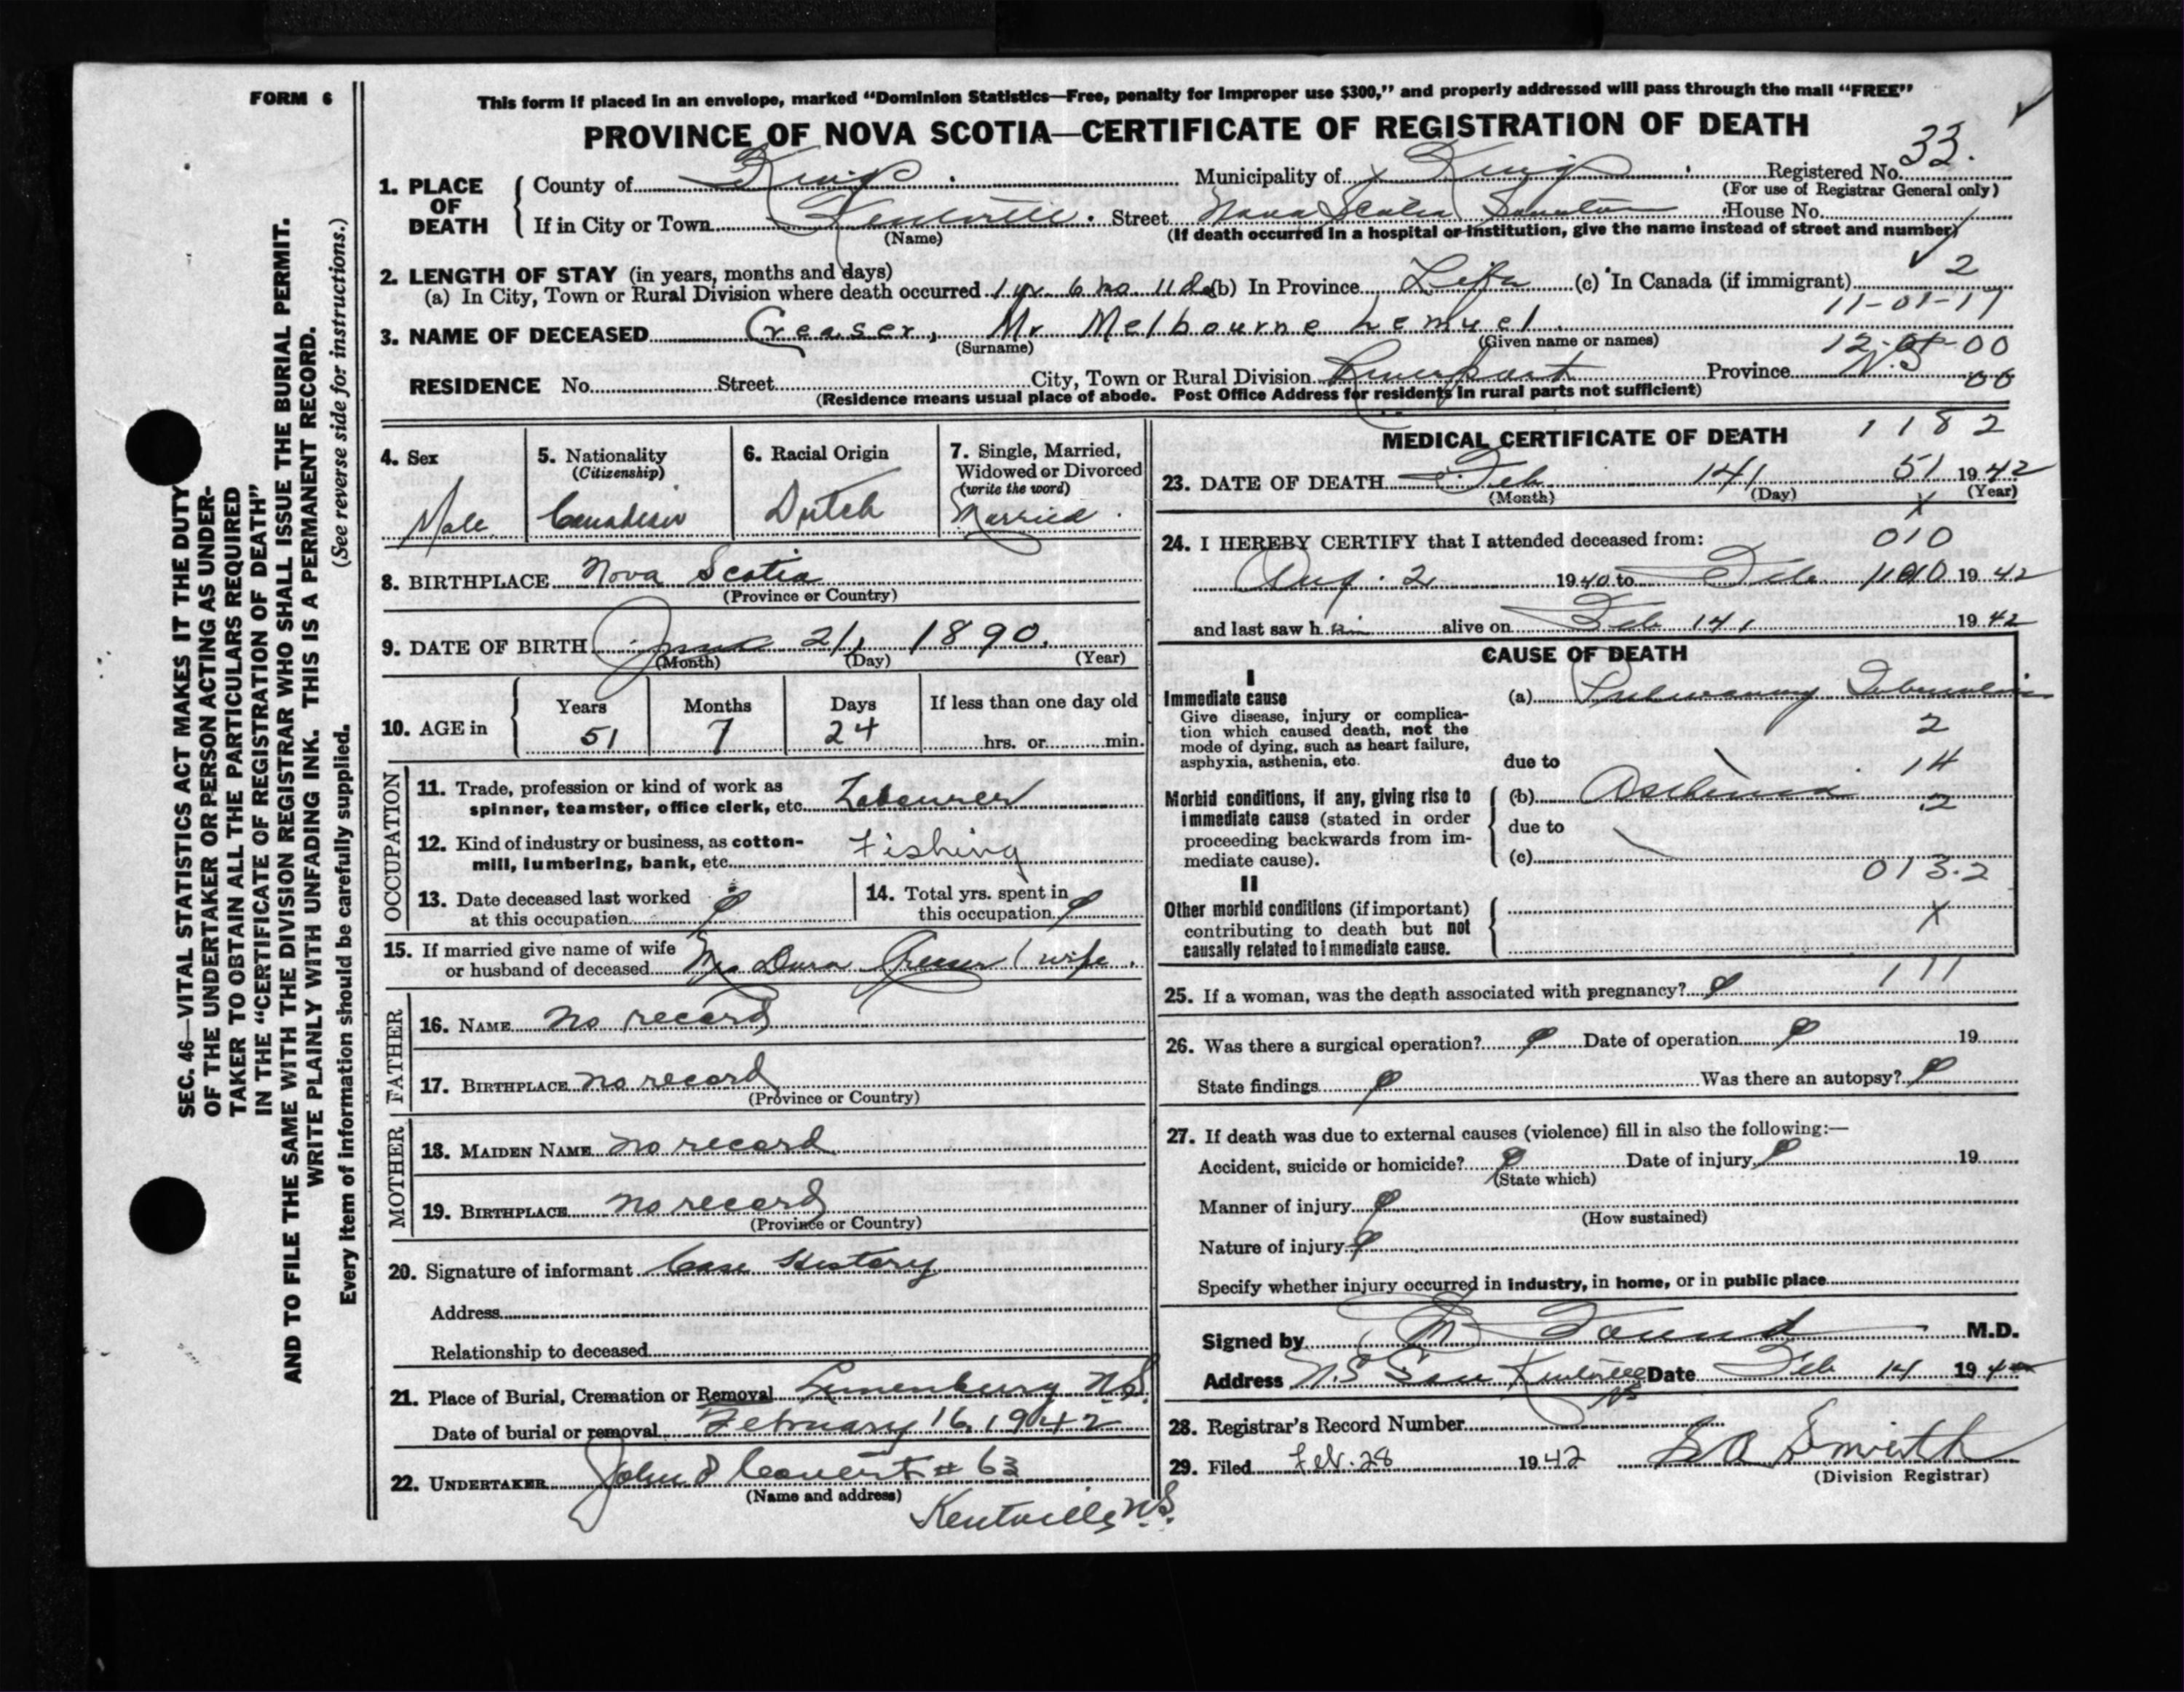 FORM 6
This form if placed in an envelope, marked “Dominion Statistics—Free, penalty for improper use $300,” and properly addressed will pass through the mail “FREE”
PROVINCE OF NOVA SCOTIA—CERTIFICATE OF REGISTRATION OF DEATH
33.
1. PLACE OF DEATH { County of Kings Municipality of Kings Registered No.
(For use of Registrar General only)
If in City or Town Kentville. Street Nova Scotia House No.
(Name) (If death occurred in a hospital or institution, give the name instead of street and number)
2. LENGTH OF STAY (in years, months and days) 2
(a) In City, Town or Rural Division where death occurred 1 yr 6 mo 11 ds (b) In Province Life (c) In Canada (if immigrant)
11-01-17
3. NAME OF DECEASED Creaser, Mr Melbourne Lemuel
(Surname) (Given name or names) 12-01-00
RESIDENCE No. Street City, Town or Rural Division Riverport Province N.S 00
(Residence means usual place of abode. Post Office Address for residents in rural parts not sufficient)
4. Sex Male
5. Nationality (Citizenship) Canadian
6. Racial Origin Dutch
7. Single, Married, Widowed or Divorced (write the word) Married
8. BIRTHPLACE Nova Scotia
(Province or Country)
9. DATE OF BIRTH June 21, 1890.
(Month) (Day) (Year)
10. AGE in { Years 51 Months 7 Days 24 If less than one day old
hrs. or min.
OCCUPATION
11. Trade, profession or kind of work as
spinner, teamster, office clerk, etc. Labourer
12. Kind of industry or business, as cotton-
mill, lumbering, bank, etc. Fishing
13. Date deceased last worked
at this occupation
14. Total yrs. spent in
this occupation
15. If married give name of wife
or husband of deceased Mrs Creaser (wife.
FATHER
16. NAME no record
17. BIRTHPLACE no record
(Province or Country)
MOTHER
18. MAIDEN NAME no record
19. BIRTHPLACE no record
(Province or Country)
20. Signature of informant Case History
Address
Relationship to deceased
21. Place of Burial, Cremation or Removal Lunenburg N.S.
Date of burial or removal February 16, 1942
22. UNDERTAKER John # 63
(Name and address)
Kentville N.S.
MEDICAL CERTIFICATE OF DEATH 1182
23. DATE OF DEATH Feb 14, 51 1942
(Month) (Day) (Year)
X
24. I HEREBY CERTIFY that I attended deceased from: 010
Aug. 2 1940 to Feb 1942
and last saw him alive on Feb 14, 1942
CAUSE OF DEATH
I
Immediate cause (a) Pulmonary Tuberculosis
Give disease, injury or complica-
tion which caused death, not the 2
mode of dying, such as heart failure,
asphyxia, asthenia, etc. due to 14
Morbid conditions, if any, giving rise to (b) 2
immediate cause (stated in order
proceeding backwards from im- due to
mediate cause). (c)
013.2
II
Other morbid conditions (if important)
contributing to death but not X
causally related to immediate cause.
25. If a woman, was the death associated with pregnancy? 111
26. Was there a surgical operation? Date of operation 19
State findings Was there an autopsy?
27. If death was due to external causes (violence) fill in also the following:—
Accident, suicide or homicide? Date of injury 19
(State which)
Manner of injury
(How sustained)
Nature of injury
Specify whether injury occurred in industry, in home, or in public place
Signed by M.D.
Address N.S San Kentville NS Date Feb 14 194
28. Registrar's Record Number
29. Filed Feb. 28 1942 Smith
(Division Registrar)
SEC. 46—VITAL STATISTICS ACT MAKES IT THE DUTY
OF THE UNDERTAKER OR PERSON ACTING AS UNDER-
TAKER TO OBTAIN ALL THE PARTICULARS REQUIRED
IN THE “CERTIFICATE OF REGISTRATION OF DEATH”
AND TO FILE THE SAME WITH THE DIVISION REGISTRAR WHO SHALL ISSUE THE BURIAL PERMIT.
WRITE PLAINLY WITH UNFADING INK. THIS IS A PERMANENT RECORD.
Every item of information should be carefully supplied. (See reverse side for instructions.)